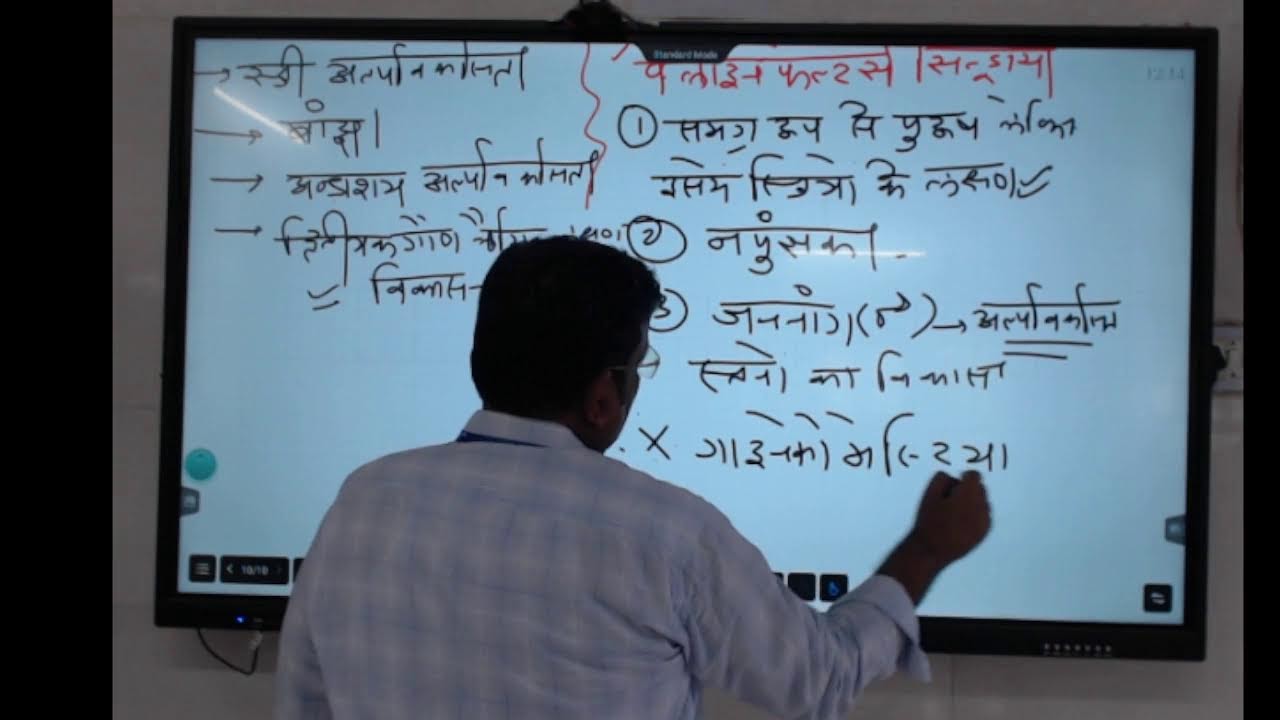 Standard Mode
12:14
→ स्त्री अल्पविकसित।
→ बांझ।
→ अण्डाशय अल्पविकसित
→ द्वितीयक गौण लैंगिक
विकास
क्लाइनफेल्टर्स सिन्ड्रोम
① समग्र रूप से पुरूष लेकिन
इसमें स्त्रियों के लक्षण
② नपुंसक।
③ जननांग (♂) → अल्पविकसित
स्तनों का विकास
X गाइनेकोमास्टिया
10/10